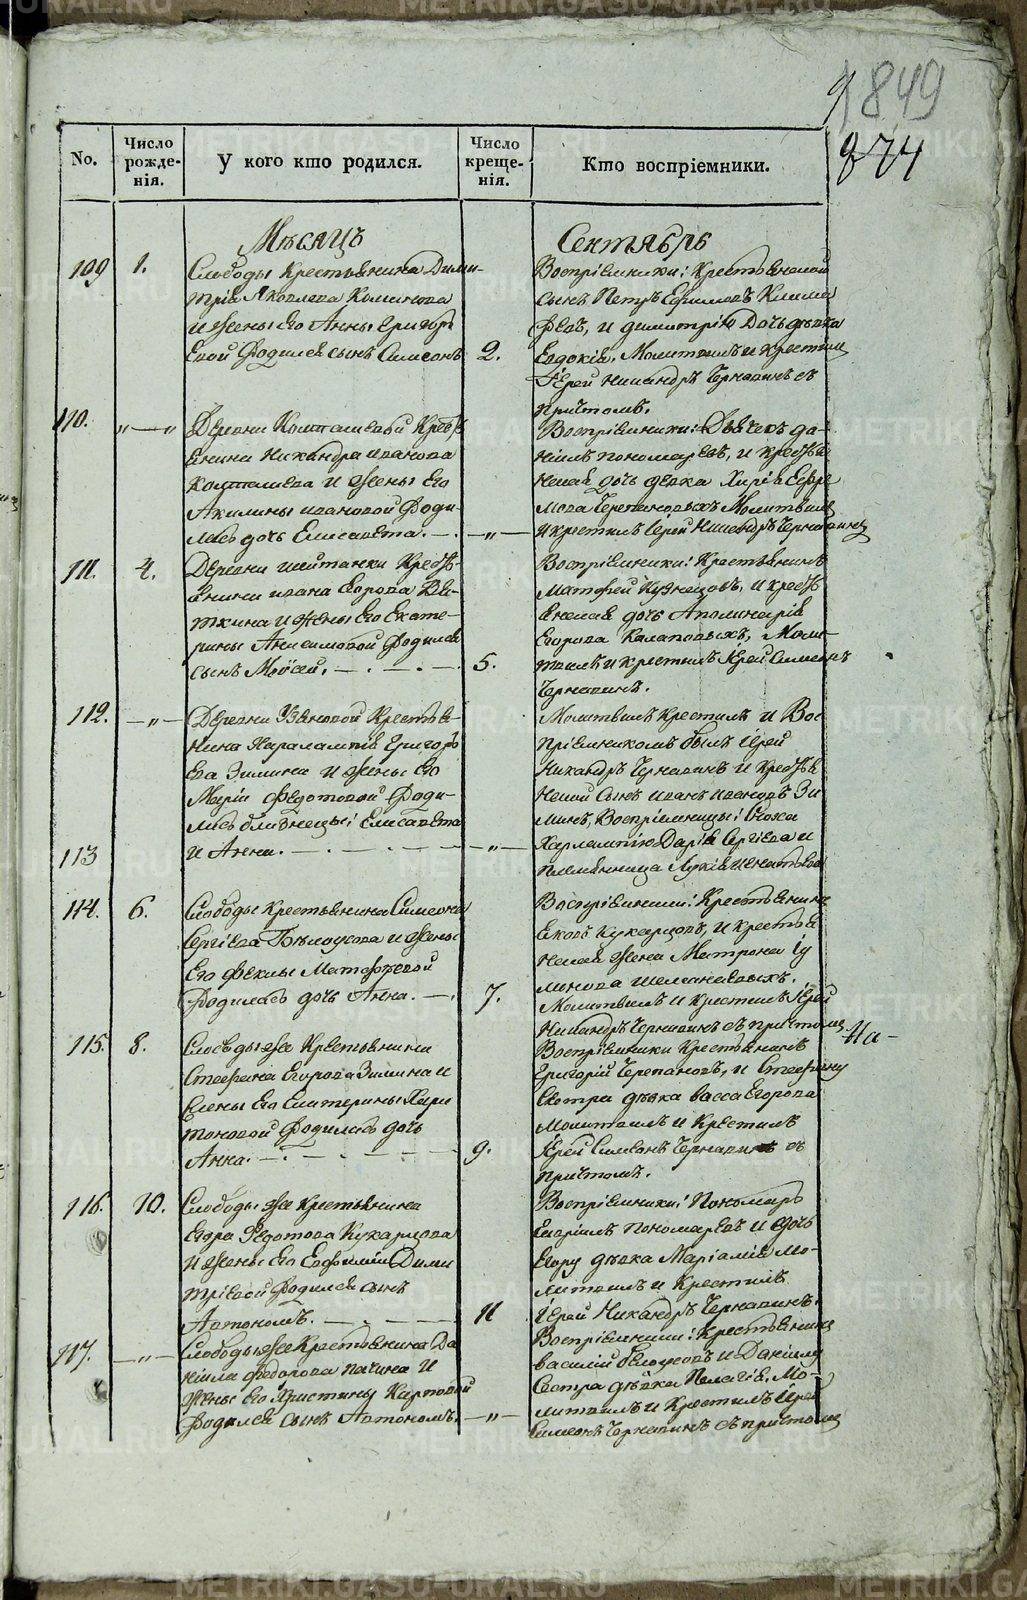 849
874
No.
Число рожде-нія.
У кого кто родился.
Число креще-нія.
Кто воспріемники.
Мѣсяцъ
Сентябрь
109
1.
Слободы Крестьянина Дими-
трія Яковлева
и жены Его Анны Григорь
Евой родился сынъ Симеонъ
2.
Воспріемники: Крестьянской
сынъ Петръ Ефимовъ
и димитрія дочь дѣвка
Евдокія. Молитвилъ и крестилъ
Іерей Никандръ Чернавинъ съ
причтомъ.
110.
„ — „
Деревни Крестьянина
Никандра иванова
и жены Его
Акилины ивановой роди-
лась дочь Елисавета. —
— „ —
Воспріемники: Дьячекъ да-
ніилъ пономаревъ, и
дочь дѣвка
Молитвилъ
и крестилъ Іерей Никандръ Чернавинъ
111.
4.
Деревни шейтанки
ивана Егорова
и жены Его Екате-
рины Анисимовой родился
сынъ Моѵсей. —
5.
Воспріемники: Крестьянинъ
Матфей Кузнецовъ, и
дочь Аполинарія
Егорова Моли-
твилъ и крестилъ Іерей Симеонъ
Чернавинъ.
112.
— „ —
Деревни Крестья-
нина Харалампія Григорь
Ева Зимина и жены Его
Маріи Федотовой роди-
лись близнецы: Елисавета
113
и Анна. —
— „ —
Молитвилъ крестилъ и Вос
пріемникомъ былъ Іерей
Никандръ Чернавинъ и
сынъ иванъ ивановъ Зи
минъ, Воспріемницы:
Харлампію Дарія Сергіева и
племянница
114.
6.
Слободы крестьянина Симеона
Сергіева Бѣлоусова и жены
Его Феклы Матфѣевой
родилась дочь Анна. —
7.
Воспріемники: Крестьянинъ
Яковъ Кукарцовъ, и крестья
жена Матрона
Молитвилъ и крестилъ Іерей
Никандръ Чернавинъ съ причтомъ
115.
8.
Слободы же Крестьянина
Стефана Егорова Зимина и
жены Его Екатерины Хари
тоновой родилась дочь
Анна. —
9.
Воспріемники Крестьянинъ
Григорій Черепановъ, и Стефану
сестра дѣвка васса Егорова
Молитвилъ и Крестилъ
Іерей Симеонъ Чернавинъ съ
причтомъ.
На-
116.
10.
Слободы же крестьянина
Егора Федотова Кукарцова
и жены Его Евфиміи Дими
тріевой родился сынъ
Автономъ. —
11
Воспріемники: Пономарь
Гавріилъ пономаревъ и дочь
Егору дѣвка Маріамія Мо-
литвилъ и Крестилъ
Іерей Никандръ Чернавинъ.
117.
— „ —
Слободы же Крестьянина Да
ніила федорова и
жены Его Христины Карповой
родился сынъ Автономъ.
— „ —
Воспріемники: Крестьянинъ
василій Бѣлоусовъ и Даніилу
Сестра дѣвка Пелагія. Мо-
литвилъ и Крестилъ Іерей
Симеонъ Чернавинъ съ причтомъ
METRIKI.GASO-URAL.RU